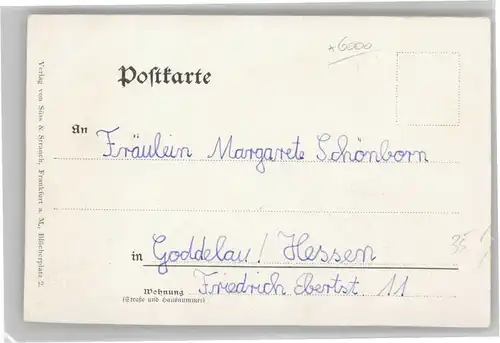 *6000
Postkarte
An Fräulein Margarete Schönborn
in Goddelau / Hessen
Wohnung Friedrich Ebertst 11
(Straße und Hausnummer)
Verlag von Süss & Strauch, Frankfurt a. M., Blücherplatz 2.